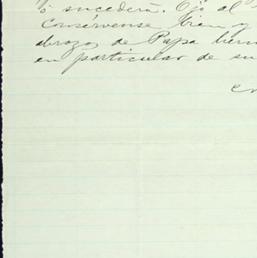 ó sucederá. Ojo al
Consérvense bien y
abrazo de Papa
en particular de su